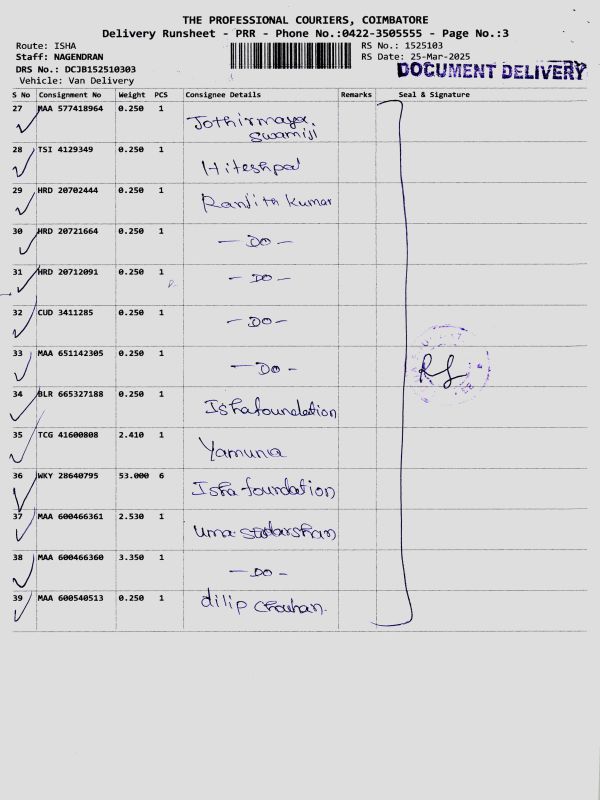 THE PROFESSIONAL COURIERS, COIMBATORE
Delivery Runsheet - PRR - Phone No.:0422-3505555 - Page No.:3
Route: ISHA
Staff: NAGENDRAN
DRS No.: DCJB152510303
Vehicle: Van Delivery
RS No.: 1525103
RS Date: 25-Mar-2025
DOCUMENT DELIVERY
S No Consignment No Weight PCS Consignee Details Remarks Seal & Signature
27 MAA 577418964 0.250 1 Jothirmaya
Swamiji
28 TSI 4129349 0.250 1 Hiteshpal
29 HRD 20702444 0.250 1 Ranjith Kumar
30 HRD 20721664 0.250 1 - DO -
31 HRD 20712091 0.250 1 - DO -
32 CUD 3411285 0.250 1 - DO -
33 MAA 651142305 0.250 1 - DO -
34 BLR 665327188 0.250 1 Isha foundation
35 TCG 41600808 2.410 1 Yamuna
36 WKY 28640795 53.000 6 Isha foundation
37 MAA 600466361 2.530 1 Uma Sudarshan
38 MAA 600466360 3.350 1 - DO -
39 MAA 600540513 0.250 1 dilip Chouhan.